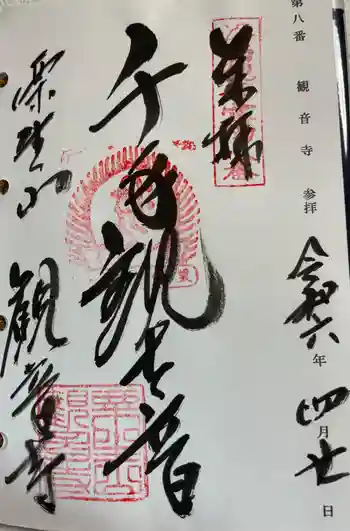 第八番 観音寺 参拝
令和六年四月廿日
奉拝
千手観世音
観音寺